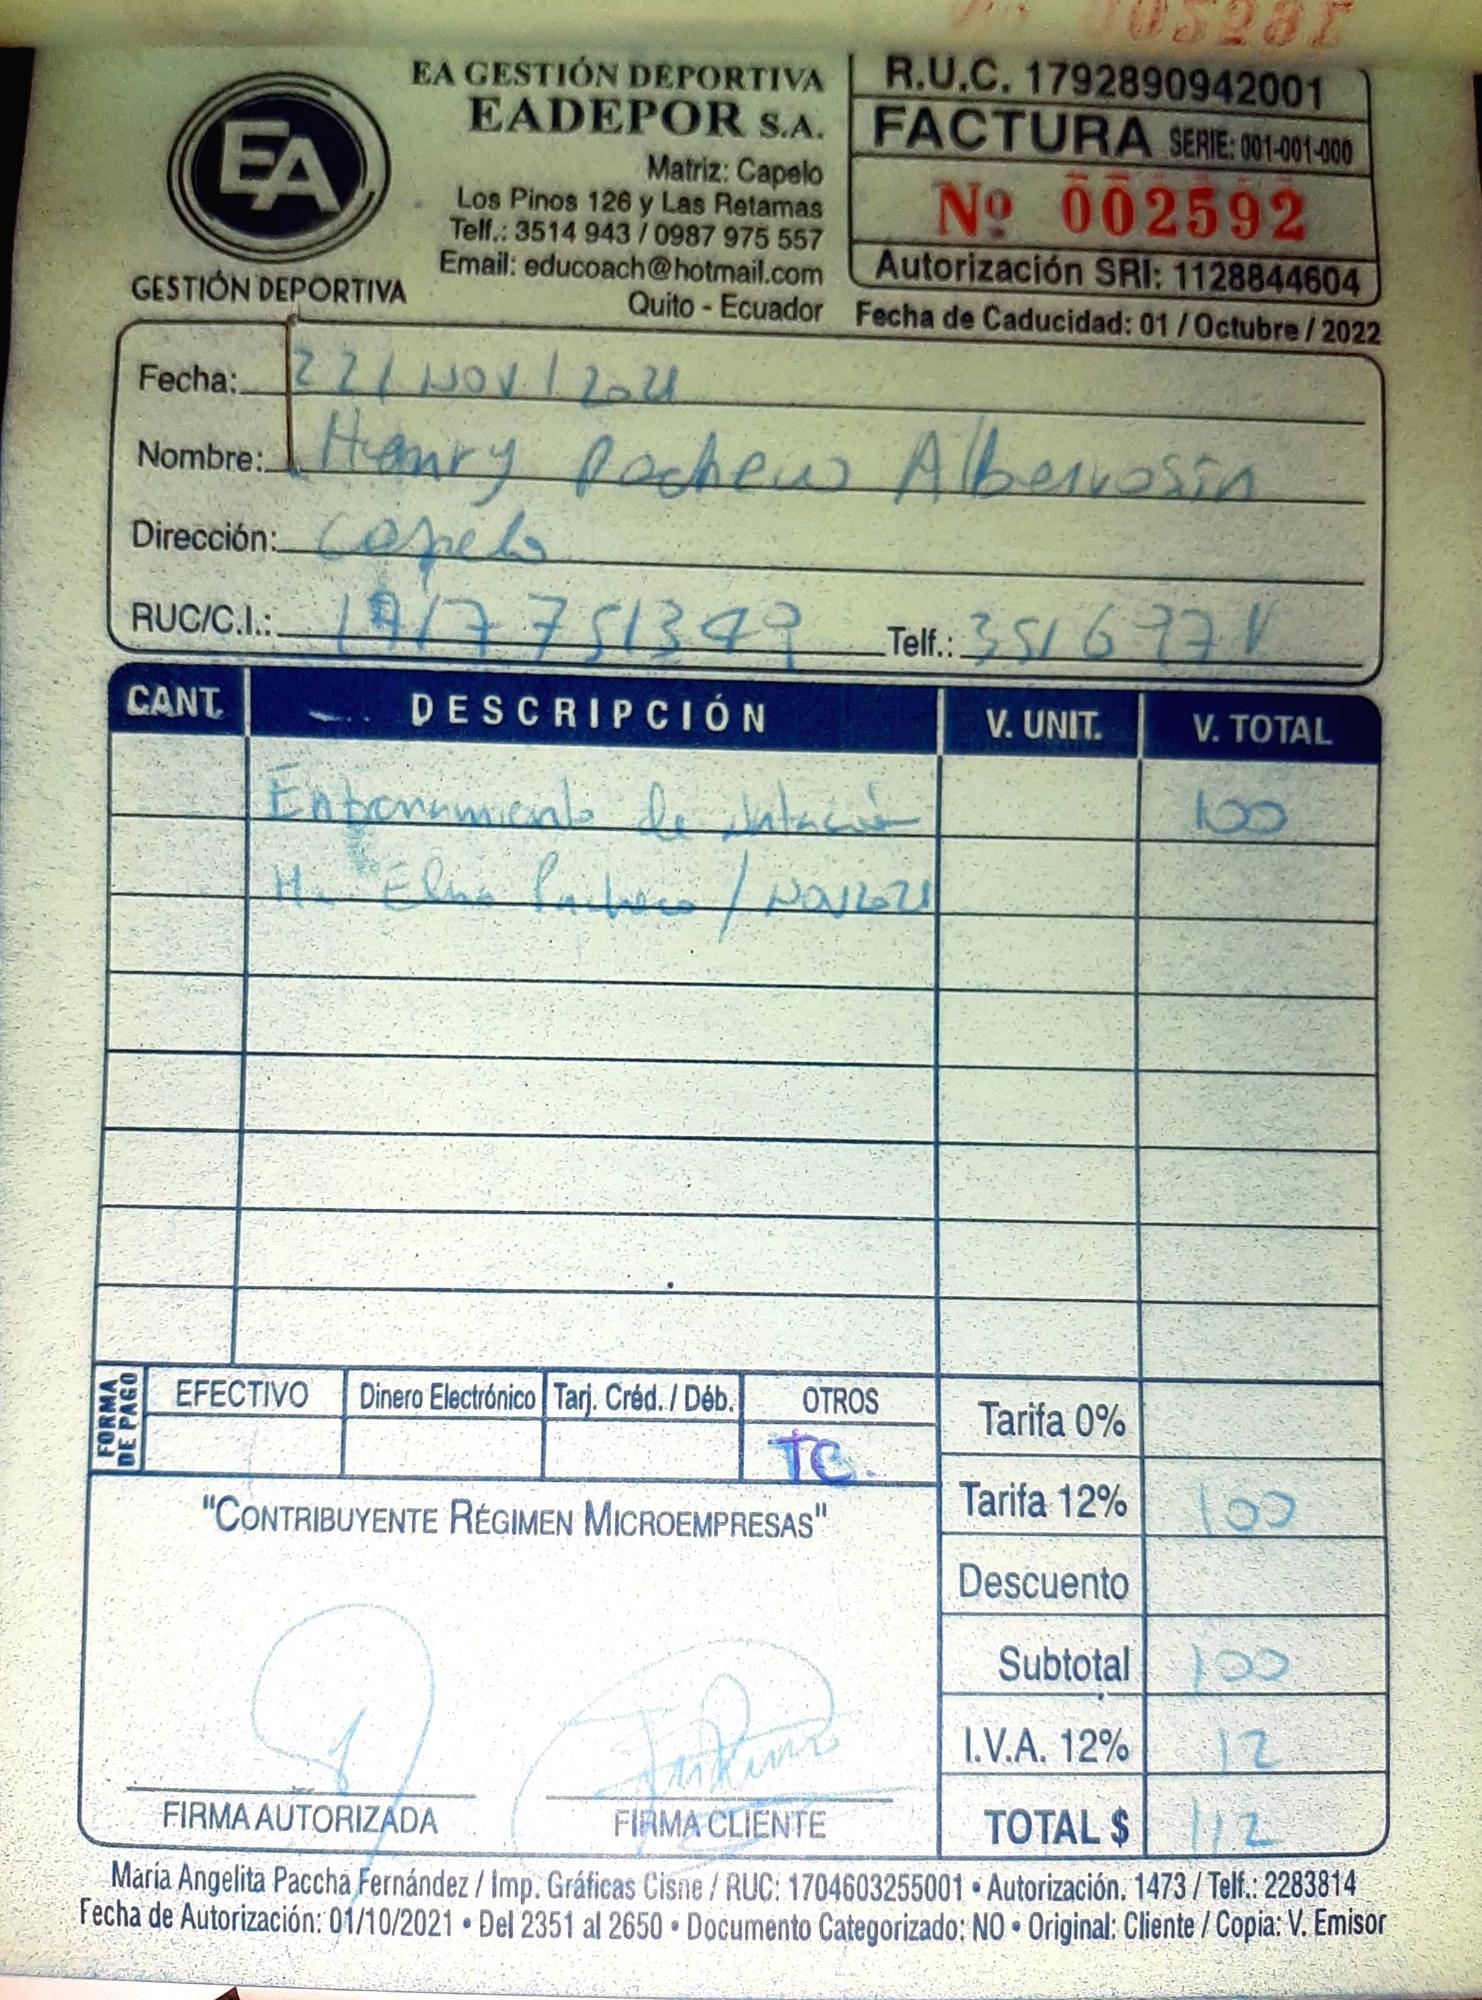 EA GESTIÓN DEPORTIVA
EADEPOR S.A.
Matriz: Capelo
Los Pinos 126 y Las Retamas
Telf.: 3514 943 / 0987 975 557
Email: educoach@hotmail.com
Quito - Ecuador
EA
GESTIÓN DEPORTIVA
R.U.C. 1792890942001
FACTURA SERIE: 001-001-000
Nº 002592
Autorización SRI: 1128844604
Fecha de Caducidad: 01 / Octubre / 2022
Fecha: 22 / NOV / 2021
Nombre: Henry Pacheco
Dirección: Capelo
RUC/C.I.: 1717751349 Telf.:
CANT. DESCRIPCIÓN V. UNIT. V. TOTAL
Entrenamiento de natación 100
Pacheco / NOV 2021
FORMA DE PAGO
EFECTIVO Dinero Electrónico Tarj. Créd. / Déb. OTROS
TC.
Tarifa 0%
Tarifa 12% 100
Descuento
Subtotal 100
I.V.A. 12% 12
TOTAL $ 112
"CONTRIBUYENTE RÉGIMEN MICROEMPRESAS"
FIRMA AUTORIZADA FIRMA CLIENTE
María Angelita Paccha Fernández / Imp. Gráficas Cisne / RUC: 1704603255001 • Autorización. 1473 / Telf.: 2283814
Fecha de Autorización: 01/10/2021 • Del 2351 al 2650 • Documento Categorizado: NO • Original: Cliente / Copia: V. Emisor